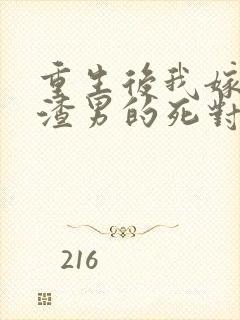 重生後我嫁
渣男的死對
216